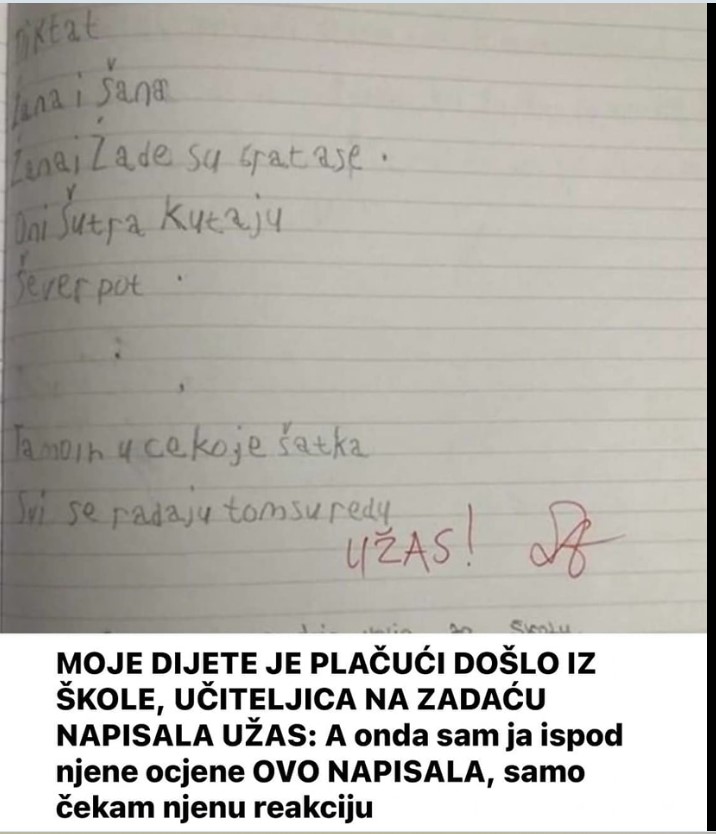 Diktat
Žana i Šana
Žena i Žade su spatase.
Oni Šutra Kutaju
Šever pot.
Tamoih y cekoje šatka
Svi se radaju tomsuredu
UŽAS!
MOJE DIJETE JE PLAČUĆI DOŠLO IZ
ŠKOLE, UČITELJICA NA ZADAĆU
NAPISALA UŽAS: A onda sam ja ispod
njene ocjene OVO NAPISALA, samo
čekam njenu reakciju